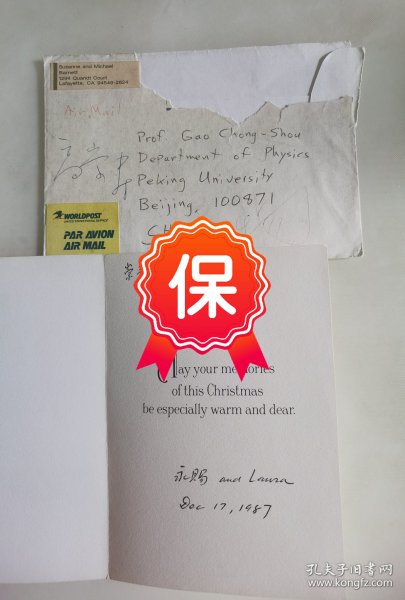 Suzanne and Michael
Barnett
1294 Quandt Court
Lafayette, CA 94549-2624
Air Mail
Prof. Gao Chong-Shou
Department of Physics
Peking University
Beijing, 100871
WORLDPOST
PAR AVION
AIR MAIL
保
崇
May your memories
of this Christmas
be especially warm and dear.
永賜 and Laura
Dec 17, 1987
孔夫子旧书网
www.kongfz.com